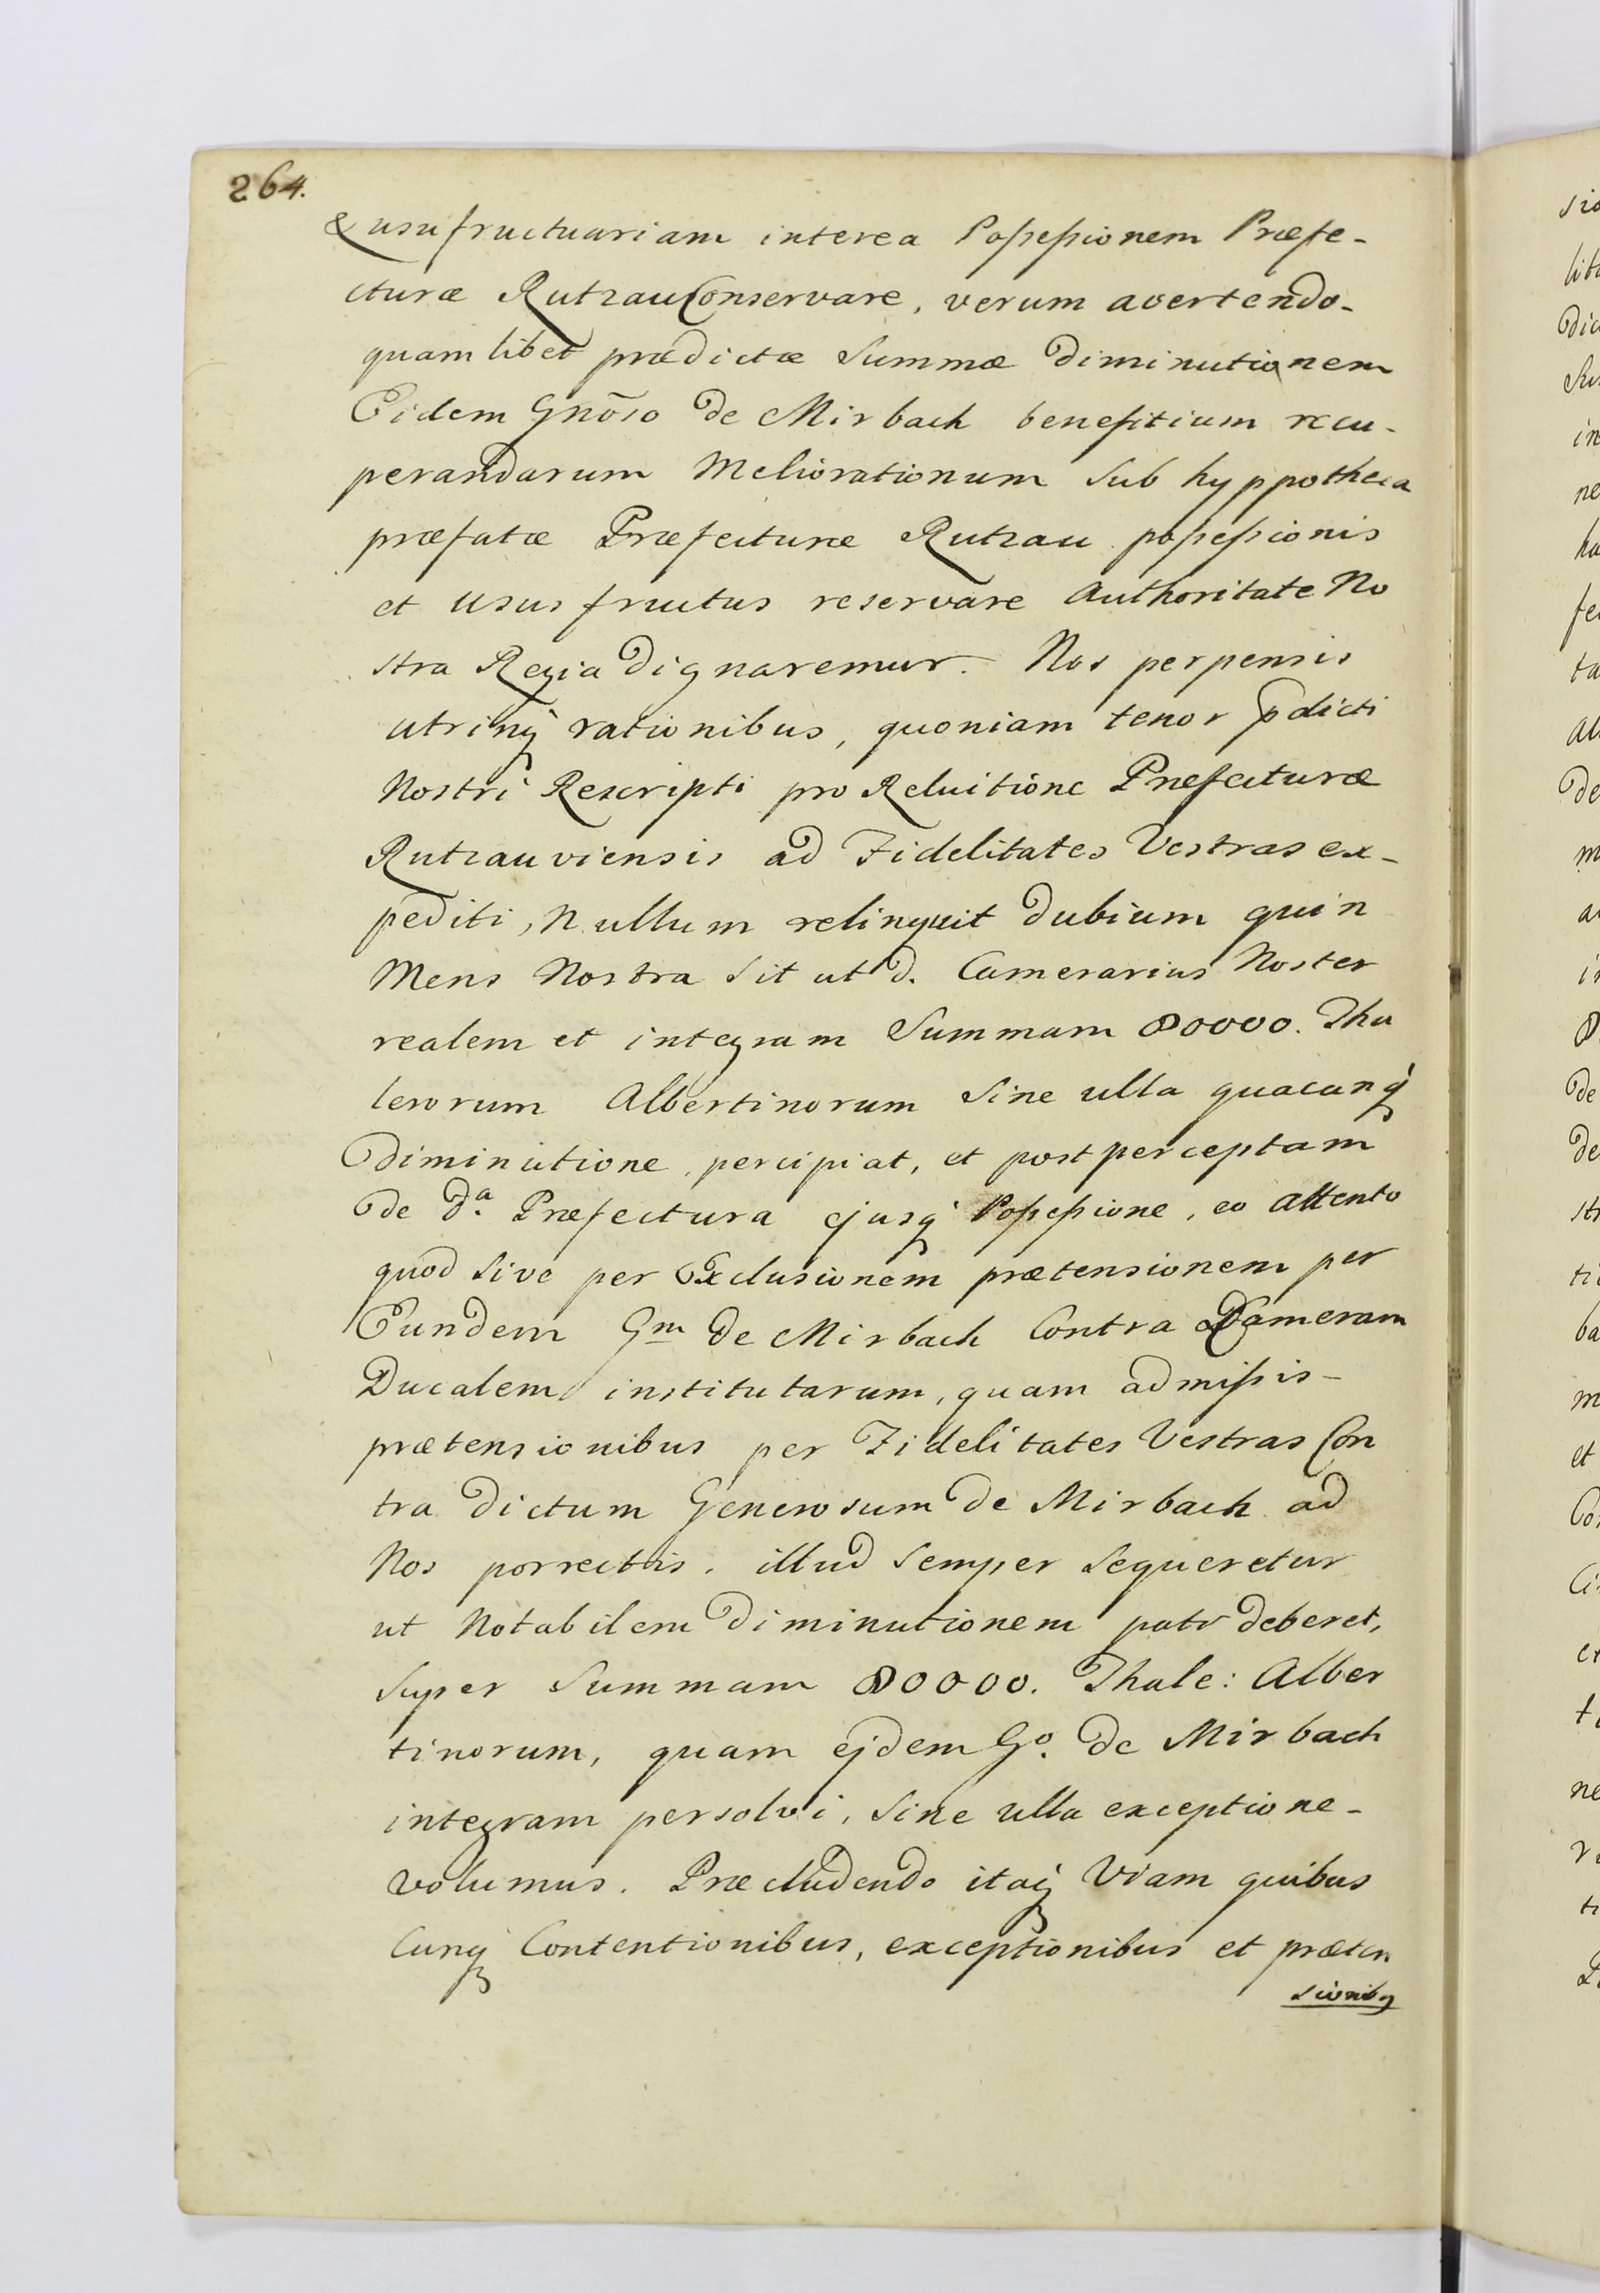 264.
& usufructuariam interea Possessionem Præfe-
cturæ Rutzau Conservare, verum avertendo-
quamlibet prædictæ Summæ diminutionem
Eidem Gnõso de Mirbach benefitium recu-
perandarum Meliorationum Sub hyppotheca
præfatæ Præfecturæ Rutzau possessionis
et Usus fructus reservare Authoritate No
stra Regia dignaremur. Nos perpensis
utrinq rationibus, quoniam tenor pdicti
Nostri Rescripti pro Reluitione Præfecturæ
Rutzauviensis ad Fidelitates Vestras ex-
pediti, Nullum relinquit dubium quin
Mens Nostra Sit ut d. Camerarius Noster
realem et integram Summam 80000. Tha
lerorum Albertinorum Sine ulla quacunq
diminutione percipiat, et post perceptam
de d.ª Præfectura ejusq Possessione, eo attento
quod Sive per Exclusionem prætensionem per
Eundem Gm de Mirbach Contra Cameram
Ducalem institutarum, quam admissis-
prætensionibus per Fidelitates Vestras Con
tra dictum Generosum de Mirbach ad
Nos porrectis. illud Semper Sequeretur
ut Notabilem Diminutionem pati deberet,
Super Summam 80000. Thale: Alber
tinorum, quam ejdem Gº. de Mirbach
integram persolvi, Sine ulla exceptione-
volumus. Præcludendo itaq Viam quibus
Cunq Contentionibus, exceptionibus et præten
sionibq